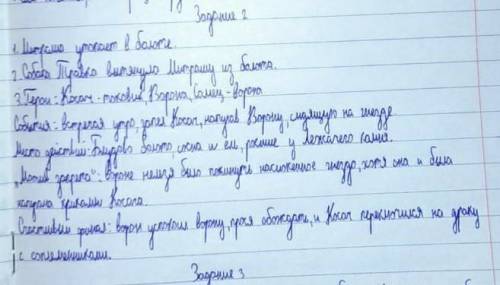 Задание 2
1. Митраша утопает в болоте.
2. Собака Травка вытянула Митрашу из болота.
3. Герои: Косач-токовик, Ворона, Самец-ворон
События: встречая утро, запел Косач, напугав Ворону, сидящую на гнезде.
Место действий: Блудово болото, сосна и ель, росшие у Лежачего камня.
"Мотив запрета": вороне нельзя было покинуть насиженное гнездо, хотя она и была
напугана криками Косача.
Счастливый финал: ворон успокоил ворону, прося обождать, и Косач переключился на драку
с соплеменниками.
Задание 3